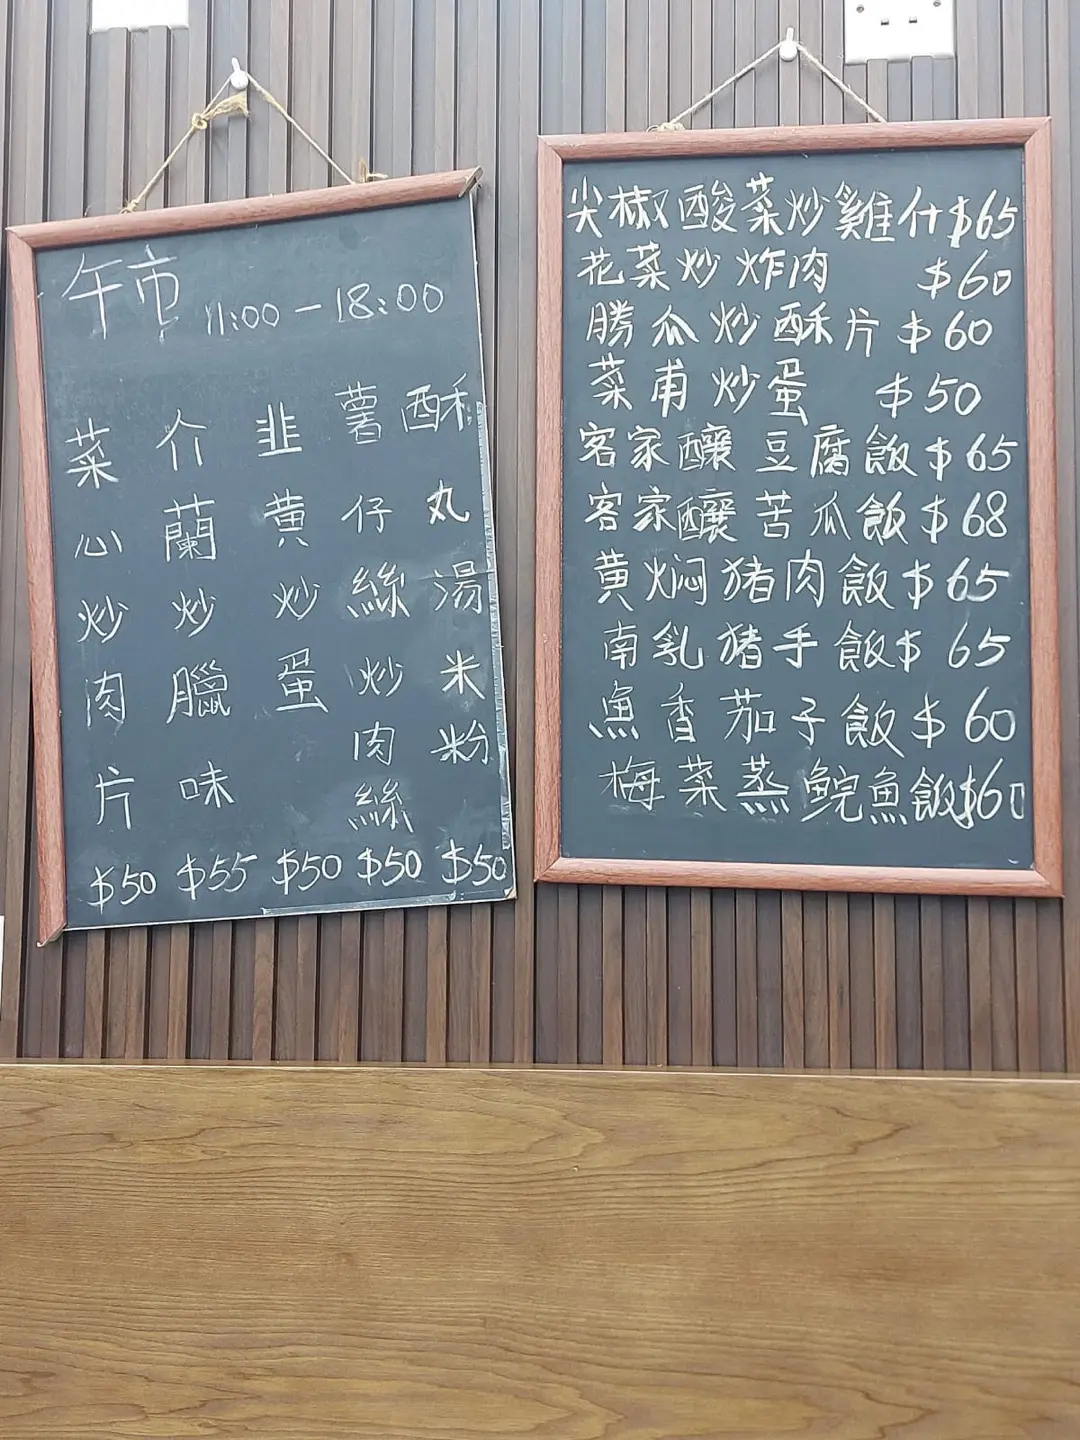 午市 11:00-18:00
菜心炒肉片 $50
介蘭炒臘味 $55
韭黄炒蛋 $50
薯仔絲炒肉絲 $50
酥丸湯米粉 $50
尖椒酸菜炒雞什$65
花菜炒炸肉 $60
勝瓜炒酥片 $60
菜甫炒蛋 $50
客家釀豆腐飯$65
客家釀苦瓜飯$68
黄焖猪肉飯$65
南乳猪手飯$65
魚香茄子飯$60
梅菜蒸鯇魚飯$60